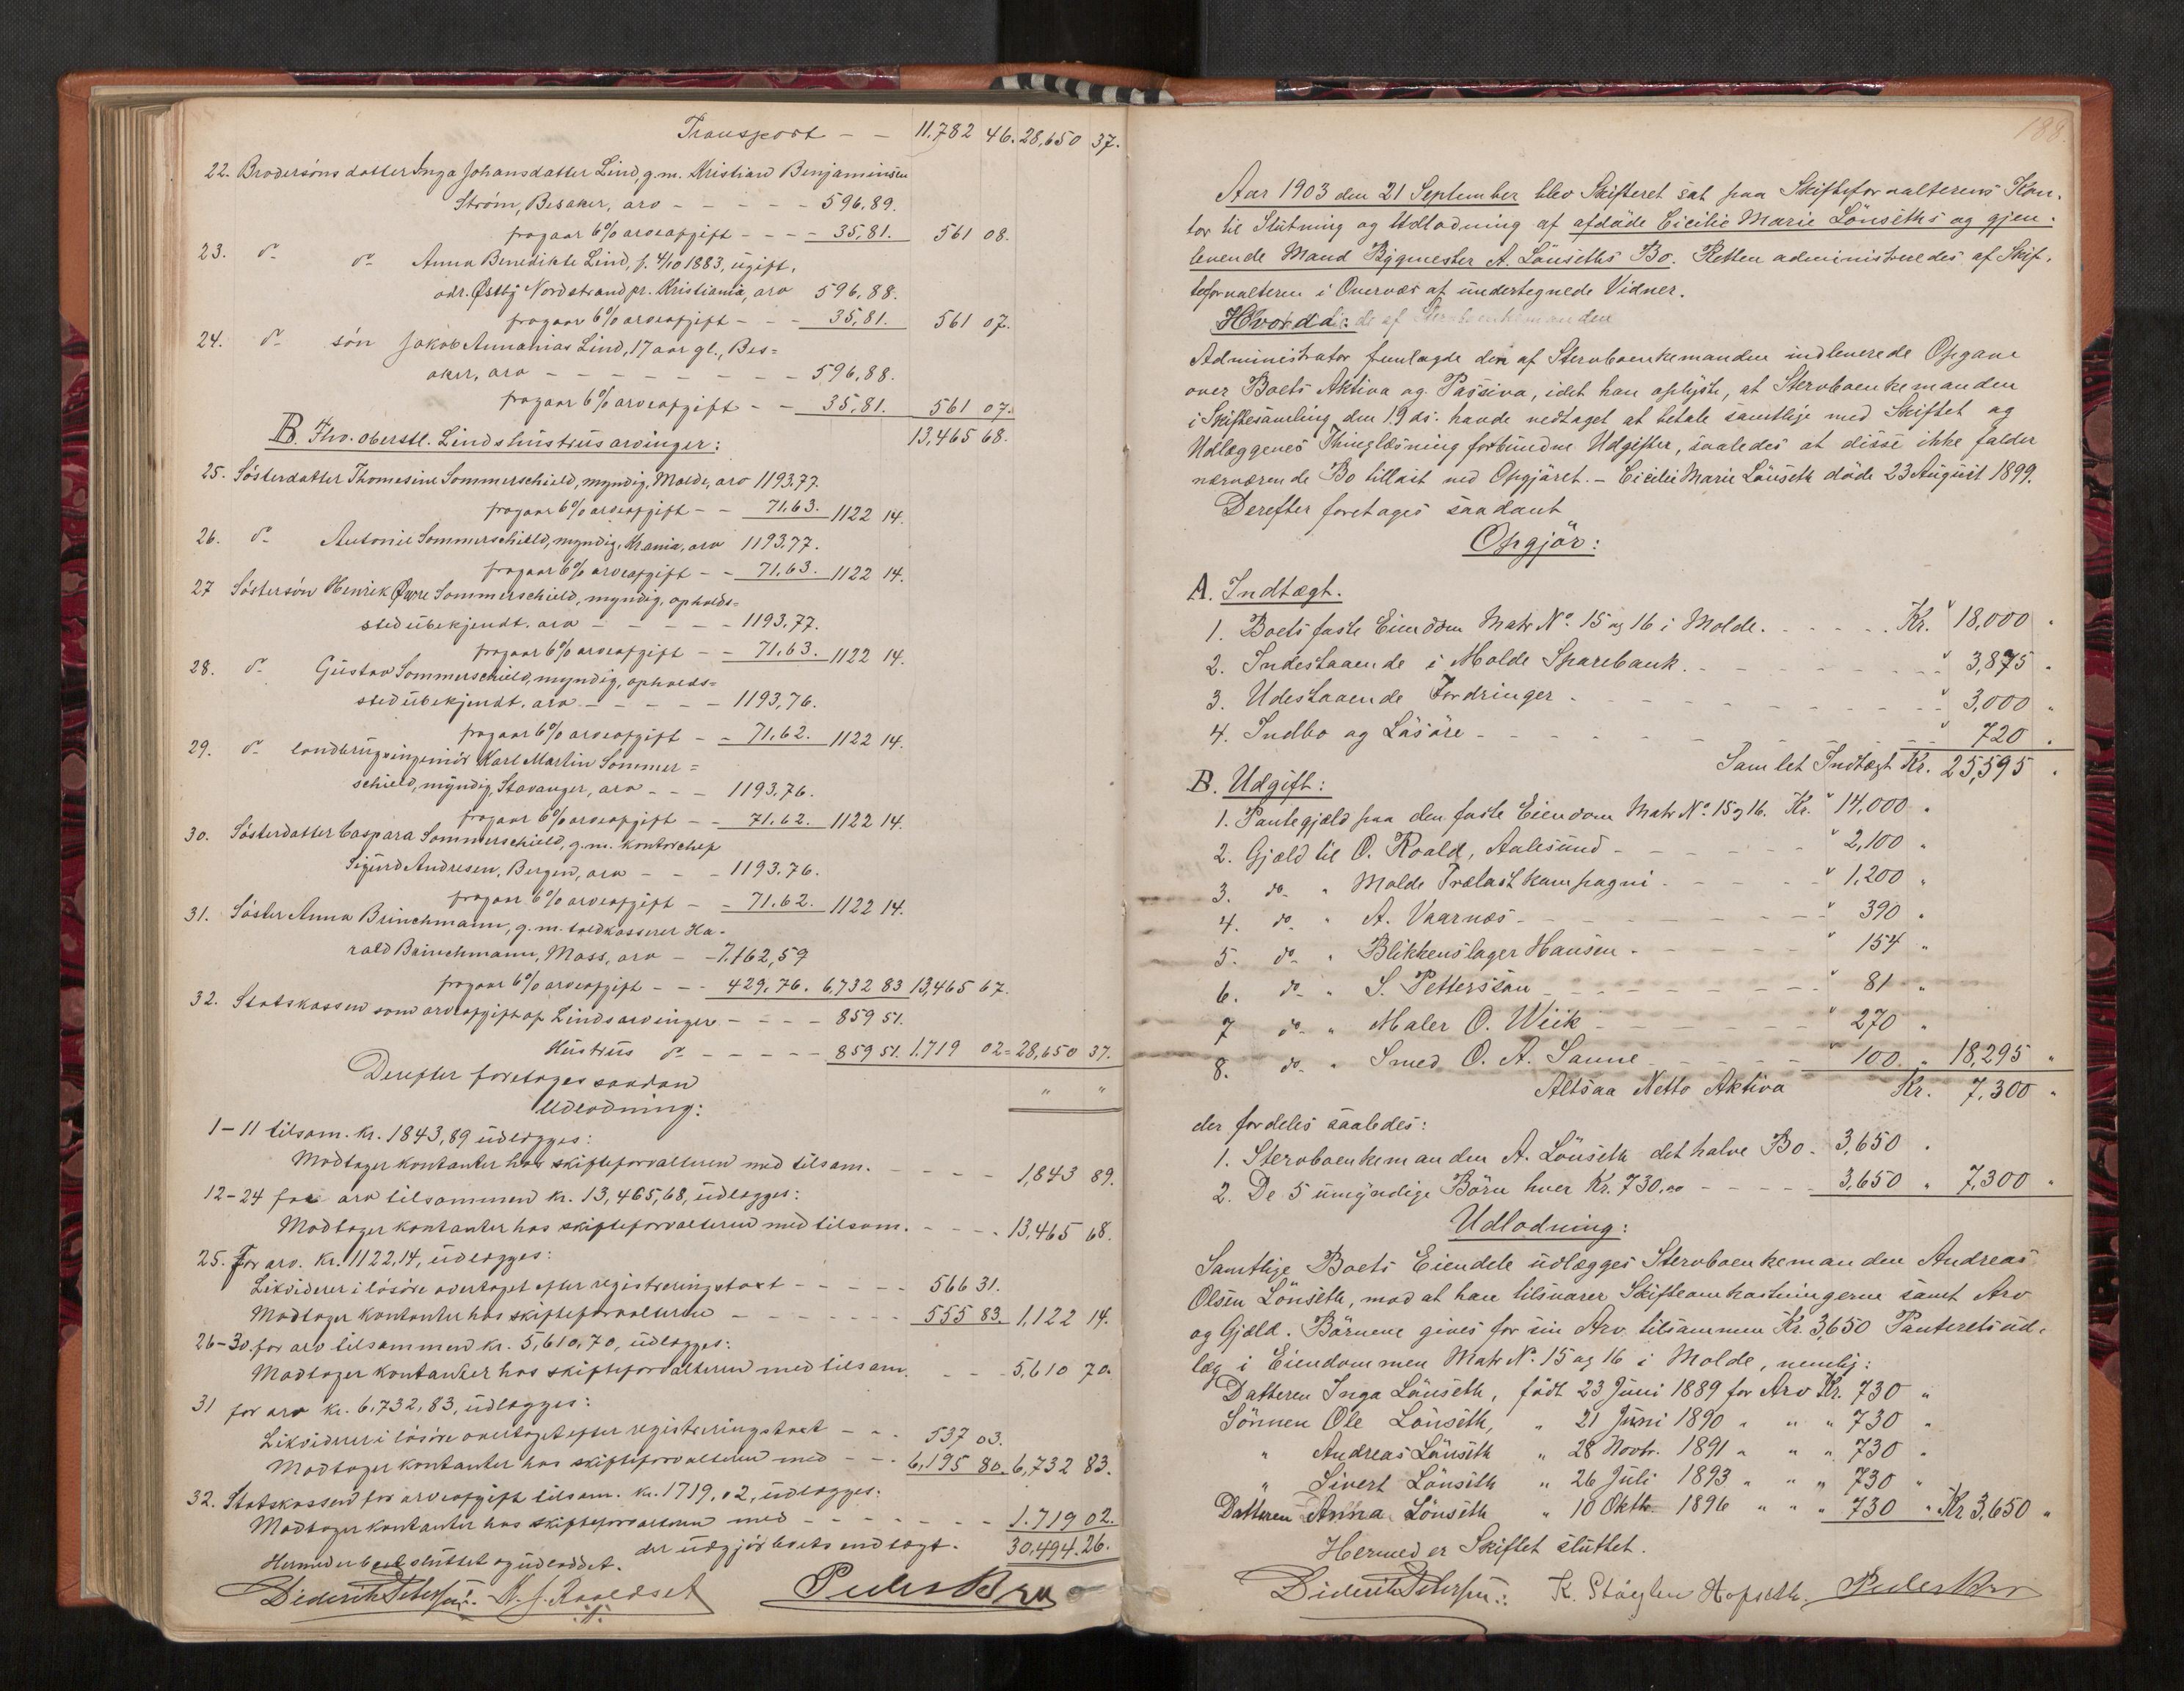 Transport - - 11,782 46. 28,650 37.
22. Brodersöns datter Inga Johansdatter Lind, g.m. Kristian Benjaminsen
Ström, Besaker, arv - - - - - 596.89.
fragaar 6% arveafgift - - - 35,81. 561 08.
23. do do Anna Benedikte Lind, f. 4/10 1883, ugift,
adr. Østby Nordstrand pr. Kristiania, arv 596,88.
fragaar 6% arveafgift - - - 35,81. 561 07.
24. do sön Jakob Annanias Lind, 17 aar gl., Bes=
aker, arv - - - - - - - - 596,88.
fragaar 6% arveafgift - - 35,81. 561 07.
B. Fhv. oberstl. Linds hustrus arvinger: 13,465 68.
25. Sösterdatter Thomesine Sommerschield, myndig, Molde, arv 1193.77.
fragaar 6% arveafgift - - 71,63. 1122 14.
26. do Antonie Sommerschield, myndig, Krania, arv 1193.77.
fragaar 6% arveafgift - - 71,63. 1122 14.
27 Söstersön Henrik Øwre Sommerschield, myndig, opholds=
sted ubekjendt. arv - - - - - 1193.77.
fragaar 6% arveafgift - - 71.63. 1122 14.
28. do Gustav Sommerschield, myndig, opholds=
sted ubekjendt. arv - - - - - 1193,76.
fragaar 6% arveafgift - - 71,62. 1122 14.
29. do landbrugsingeniör Karl Martin Sommer=
schield, myndig, Stavanger, arv - - - 1193.76.
fragaar 6% arveafgift - - 71.62. 1122 14.
30. Sösterdatter Caspara Sommerschield, g.m. kontorchef
Sigurd Andresen, Bergen, arv - - - 1193.76.
fragaar 6% arveafgift - - 71.62. 1122 14.
31. Söster Anna Brinchmann, g.m. toldkasserer Ha-
rald Brinchmann, Moss, arv - - 7.162,59
fragaar 6% arveafgift - - - 429.76. 6,732 83 13,465 67.
32. Statskassen som arveafgift af Linds arvinger - - - - 859 51.
Hustrus do - - - - - 859 51. 1.719 02 = 28,650 37.
Derefter foretages saadan " "
Udlodning:
1-11 tilsam. kr. 1843,89 udlægges:
Modtager kontanter hos skifteforvalteren med tilsam. - - - - 1,843 89.
12-24 for arv tilsammen kr. 13,465,68, udlægges:
Modtager kontanter hos skifteforvalteren med tilsam. - - - - 13,465 68.
25. For arv. kr. 1122,14, udlægges:
Likviderer i lösöre overtaget efter registreringstakst - - - - - 566 31.
Modtager kontanter hos skifteforvalteren - - - - - - - 555 83. 1,122 14.
26-30. for arv tilsammen kr. 5,610,70, udlægges:
Modtager kontanter hos skifteforvalteren med tilsam. - - - 5,610 70.
31 for arv kr. 6,732,83, udlægges:
Likviderer i lösöre overtaget efter registreringstakst - - - 537 03.
Modtager kontanter hos skifteforvalteren med - - - 6,195 80. 6,732 83.
32. Statskassen for arveafgift tilsam. kr. 1719,02, udlægges:
Modtager kontanter hos skifteforvalteren med - - - - - - - 1.719 02.
der udgjör boets indtægt. 30,494.26.
Hermed er boet sluttet og udloddet.
Diderik Petersen. K. J. Roaldset Peder Bro
188.
Aar 1903 den 21 September blev Skifteret sat paa Skifteforvalterens Kon-
tor til Slutning og Udlodning af afdöde Cicilie Marie Lönseths og gjen-
levende Mand Bygmester A. Lönseths Bo. Retten administreredes af Skif-
teforvalteren i Overvær af undertegnede Vidner.
Hvorda:
Administrator fremlagde den af Stervboenkemanden indleverede Opgave
over Boets Aktiva og Passiva, idet han oplyste, at Stervboenkemanden
i Skiftesamling den 19 ds. havde vedtaget at betale samtlige med Skiftet og
Udlæggenes Thinglæsning forbundne Udgifter, saaledes at disse ikke falder
nærværende Bo tillast ved Opgjöret. - Cicilie Marie Lönseth döde 23 August 1899.
Derefter foretages saadant
Opgjör:
A. Indtægt.
1. Boets faste Eiendom Matr No. 15 og 16 i Molde. - - - - - Kr. " 18,000 "
2. Indestaaende i Molde Sparebank. - - - - - - - - " 3,875 "
3. Udestaaende Fordringer - - - - - - - - - - - " 3,000 "
4. Indbo og Lösöre - - - - - - - - - - - - " 720 "
Samlet Indtægt Kr. 25,595 "
B. Udgift:
1. Pantegjæld paa den faste Eiendom Matr No. 15 og 16. Kr. " 14,000 "
2. Gjæld til O. Roald, Aalesund - - - - - - - " 2,100 "
3. do " Molde Trælastkompagni - - - - - " 1,200 "
4. do " A. Vaarnæs - - - - - - - - - " 390 "
5. do " Blikkenslager Hansen - - - - - - " 154 "
6. do " S. Petterssön - - - - - - - - - " 81 "
7 do " Maler O. Wiik - - - - - - - " 270 "
8. do " Smed O. A. Sanne - - - - - - " 100 " 18,295 "
Altsaa Netto Aktiva Kr. 7,300 "
der fordeles saaledes:
1. Stervboenkemanden A. Lönseth det halve Bo - 3,650 "
2. De 5 umyndige Börn hver Kr. 730,00 - - - - - 3,650 " 7,300 "
Udlodning:
Samtlige Boets Eiendele udlægges Stervboenkemanden Andreas
Olsen Lönseth, mod at han tilsvarer Skifteomkostningerne samt Arv
og Gjæld. Börnene gives for sin Arv tilsammen Kr. 3,650 Panteretsud-
læg i Eiendommen Matr No. 15 og 16 i Molde, nemlig:
Datteren Inga Lönseth, födt 23 Juni 1889 for Arv Kr. 730 "
Sönnen Ole Lönseth, " 21 Juni 1890 " " " 730 "
" Andreas Lönseth " 28 Novbr. 1891 " " " 730 "
" Sivert Lönseth " 26 Juli 1893 " " " 730 "
Datteren Anna Lönseth " 10 Oktb. 1896 " " " 730 " Kr 3,650 "
Hermed er Skiftet sluttet.
Diderik Petersen. K. Stöylen Hopseth. Peder Bro